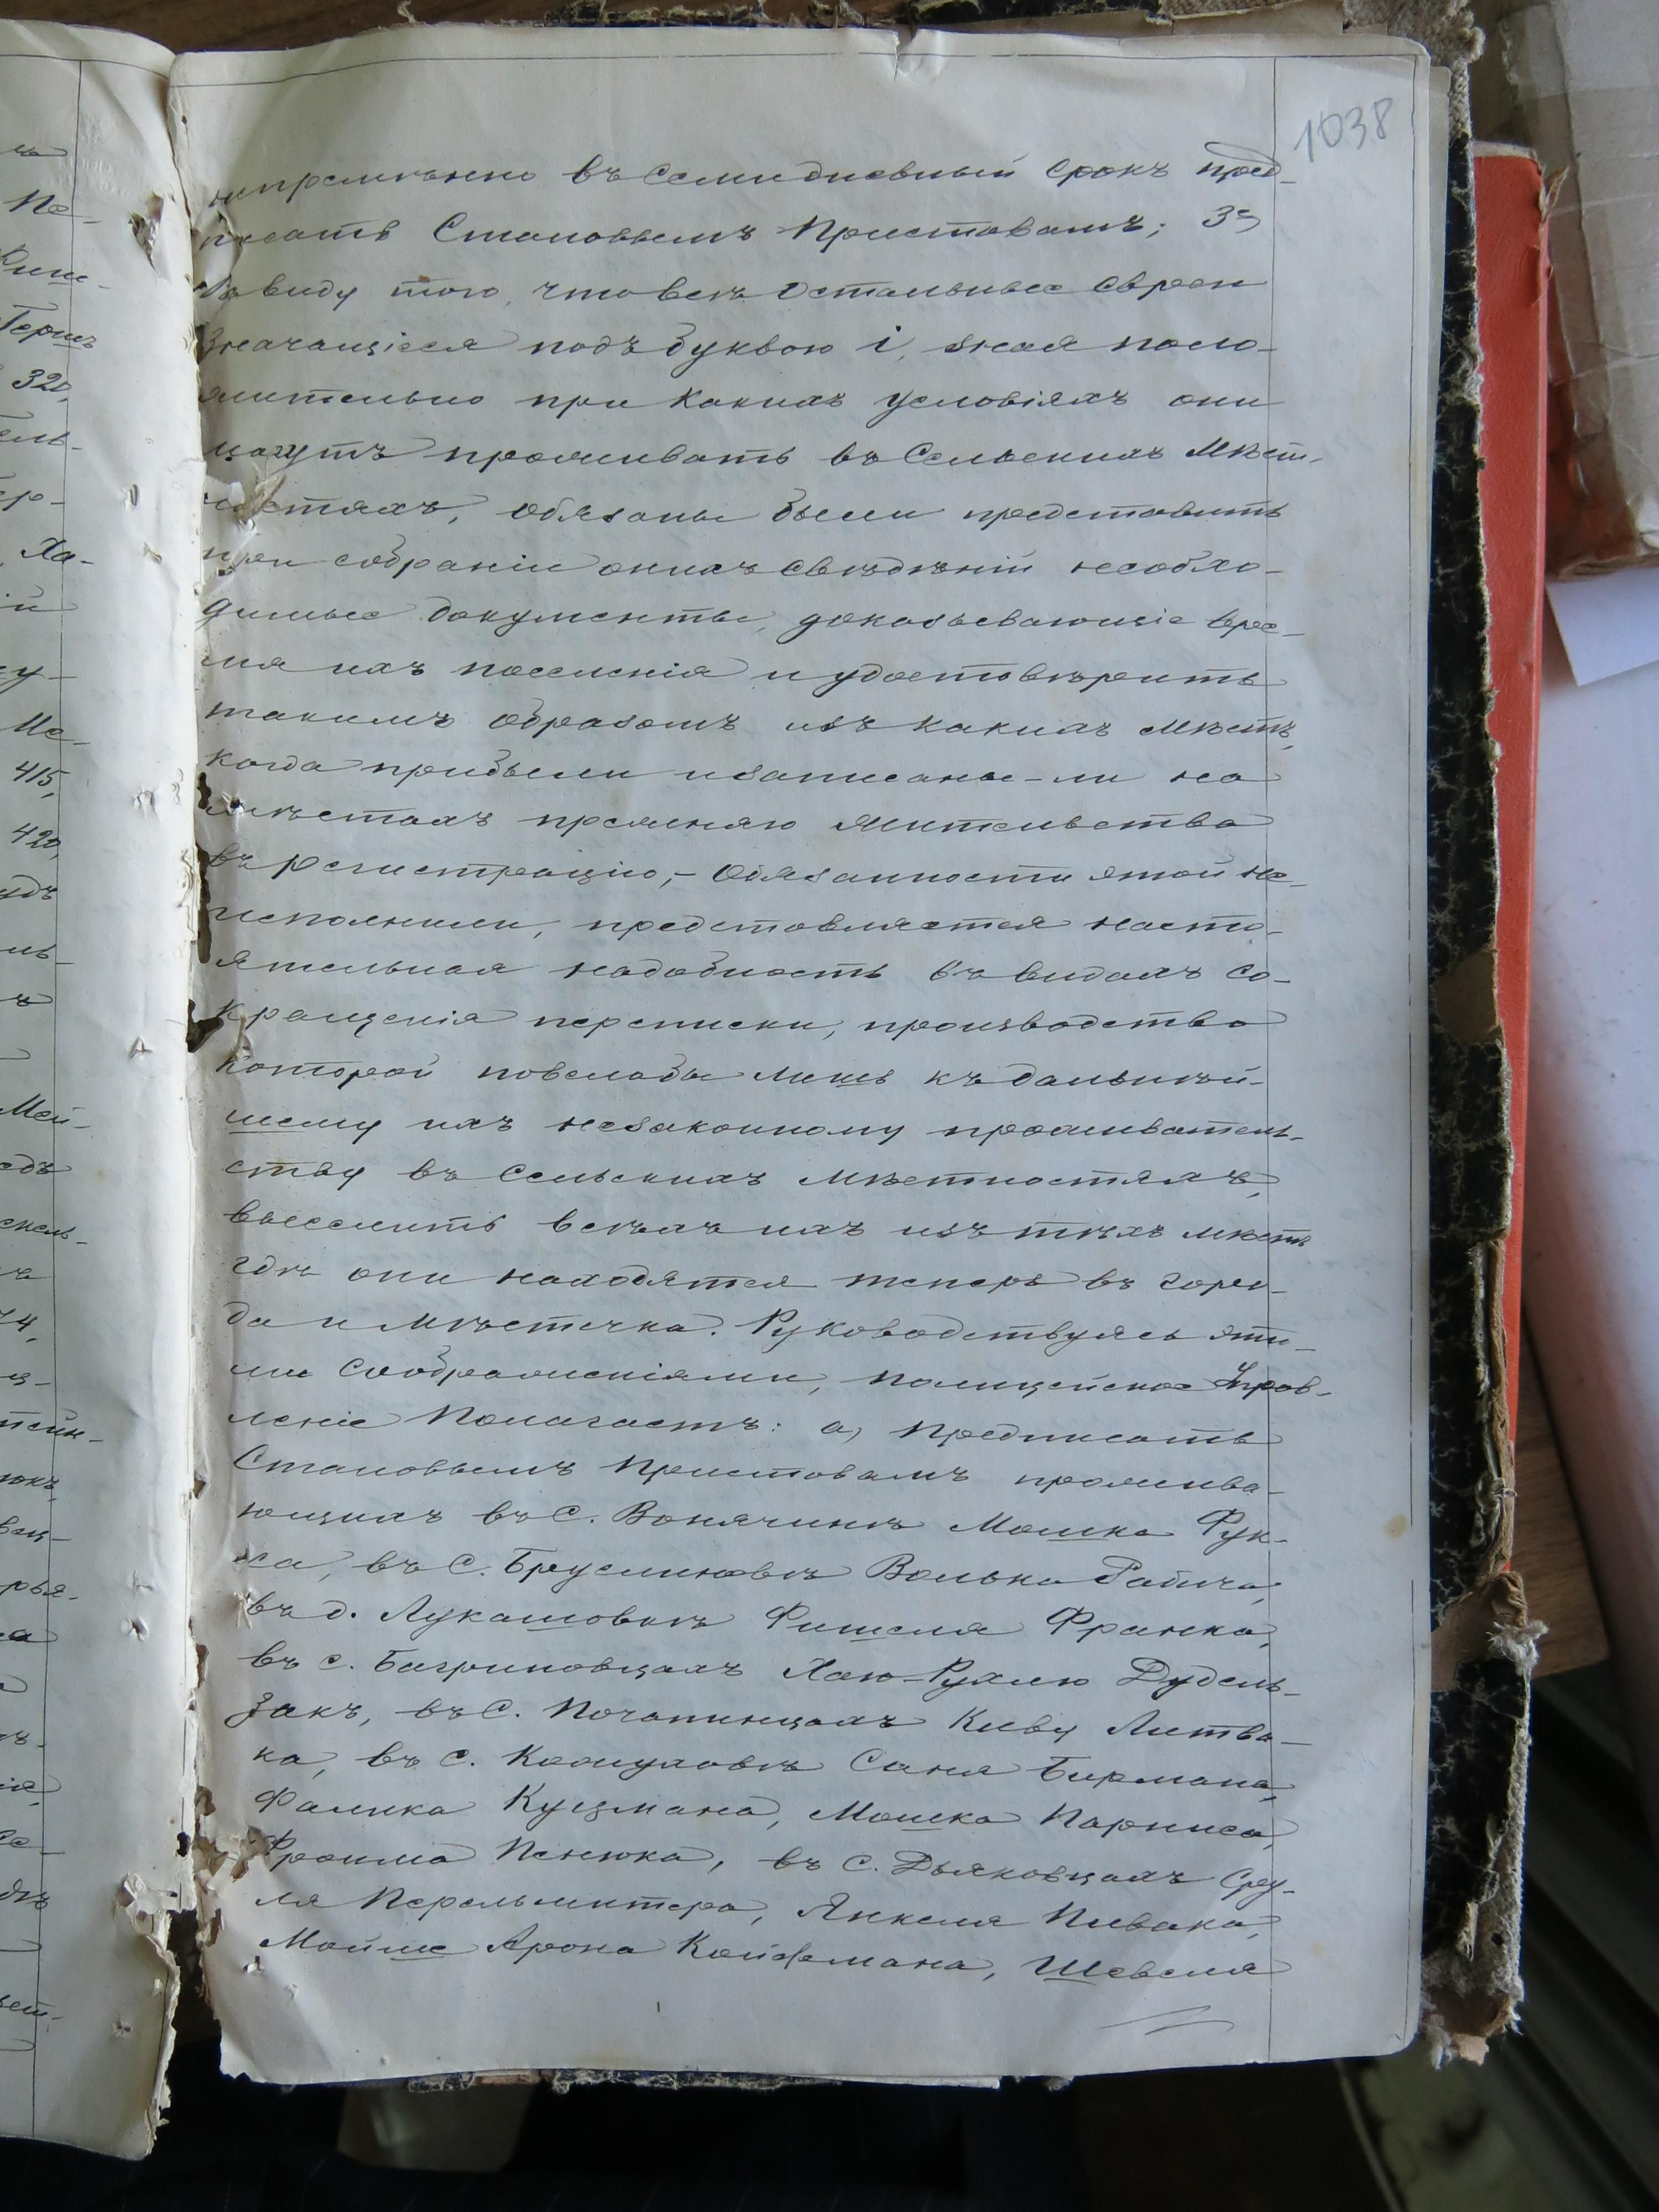 1038
непремѣнно въ семидневный срокъ пред-
писать Становымъ Приставамъ; 3е)
Въ виду того, что всѣ остальные Евреи
Значащіеся подъ буквою і, зная поло-
жительно при какихъ условіяхъ они
могутъ проживать въ Сельскихъ Мѣст-
ностяхъ, обязаны были представить
при собраніи оныхъ свѣдѣній необхо-
димые документы, доказывающіе вре-
мя ихъ поселенія и удостовѣрить
такимъ образомъ изъ какихъ мѣстъ,
когда прибыли и записаны-ли на
мѣстахъ прежняго жительства
въ регистрацію,- Обязанности этой не-
исполнили, представляется насто-
ятельная надобность въ видахъ со-
кращенія переписки, производство
которой повелобы лишь къ дальнѣй-
шему ихъ незаконному проживатель-
ству въ Сельскихъ мѣстностяхъ,
выселить всѣхъ ихъ изъ тѣхъ мѣстъ
гдѣ они находятся теперь въ горо-
да и мѣстечка. Руководствуясь эти-
ми соображеніями, полицейское Управ-
леніе Полагаетъ: а) предписать
Становымъ Приставамъ прожива-
ющихъ въ С. Вонячинѣ Мошка Фук-
са, въ С. Бруслиновѣ Волька Рабича,
въ д. Лукашовкѣ Фишеля Франка,
въ с. Багриновцахъ Хаю-Рухлю Дудель-
закъ, въ С. Почапинцахъ Киву Литва-
ка, въ С. Кожуховѣ Саня Бирмана,
Фалика Куцмана, Мошка Парписа,
Фроима Пенюка, въ С. Дьяковцахъ Сру-
ля Перельмитера, Янкеля Пивака,
Мойше Арона Койфмана, Шевеля